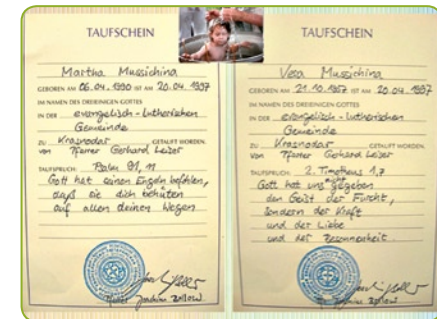 TAUFSCHEIN
Martha Mussichina
GEBOREN AM 06.04.1990 IST AM 20.04.1997
IM NAMEN DES DREIEINIGEN GOTTES
IN DER evangelisch-lutherischen
Gemeinde
ZU Krasnodar GETAUFT WORDEN.
von Pfarrer Gerhard Leiser
TAUFSPRUCH: Psalm 91, 11
Gott hat seinen Engeln befohlen,
daß sie dich behüten
auf allen deinen Wegen
TAUFSCHEIN
Vera Mussichina
GEBOREN AM 21.10.1957 IST AM 20.04.1997
IM NAMEN DES DREIEINIGEN GOTTES
IN DER evangelisch-lutherischen
Gemeinde
ZU Krasnodar GETAUFT WORDEN.
von Pfarrer Gerhard Leiser
TAUFSPRUCH: 2. Timotheus 1,7
Gott hat uns nicht gegeben
den Geist der Furcht,
sondern der Kraft
und der Liebe
und der Besonnenheit.